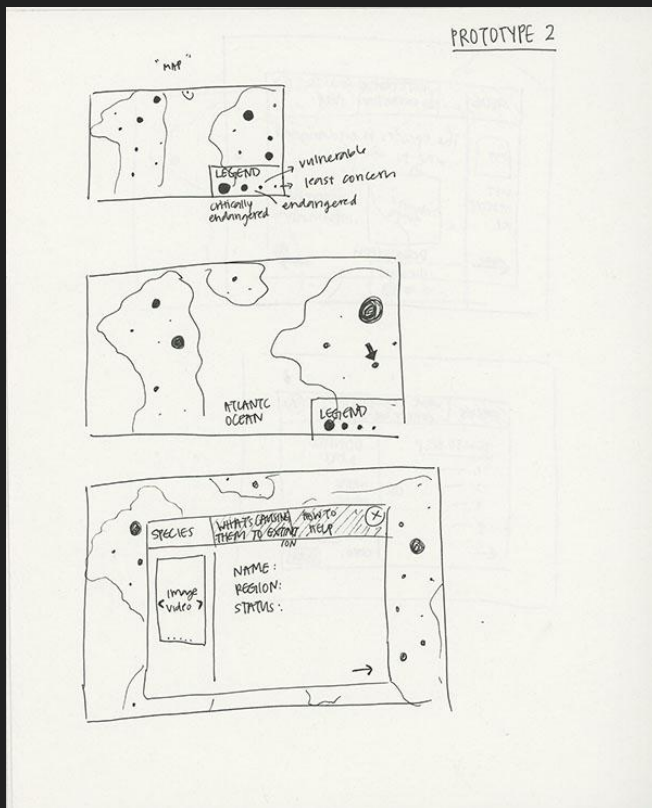 PROTOTYPE 2
"MAP"
LEGEND
vulnerable
least concern
endangered
critically
endangered
ATLANTC
OCEAN
LEGEND
SPECIES
WHAT'S CAUSING
THEM TO EXTINT
ION
HOW TO
HELP
X
Image
Video
NAME:
REGION:
STATUS: